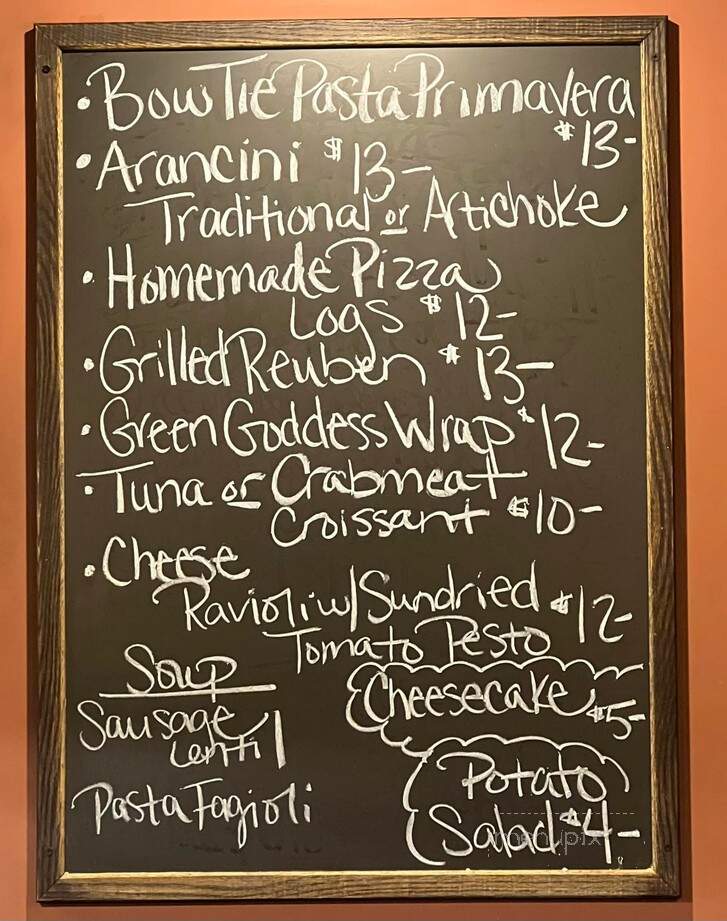 • Bow Tie Pasta Primavera
$13-
• Arancini $13-
Traditional or Artichoke
• Homemade Pizza
Logs $12-
• Grilled Reuben $13-
• Green Goddess Wrap $12-
• Tuna or Crabmeat
Croissant $10-
• Cheese
Ravioli w/ Sundried $12-
Tomato Pesto
Soup
Sausage
Lentil
Pasta Fagioli
Cheesecake $5-
Potato
Salad $4-
menupix